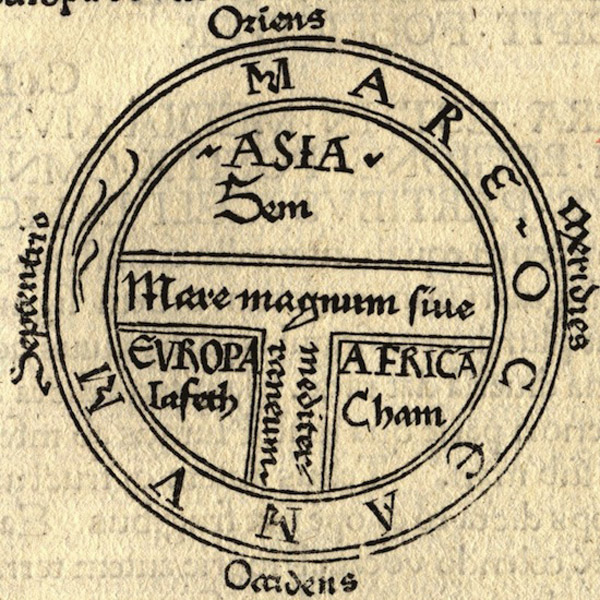 Oriens
MARE ~ OCEANVM
ASIA
Sem
Septentrio
Meridies
Mare magnum ſiue
mediter
raneum
EVROPA
Iafeth
AFRICA
Cham
Occidens